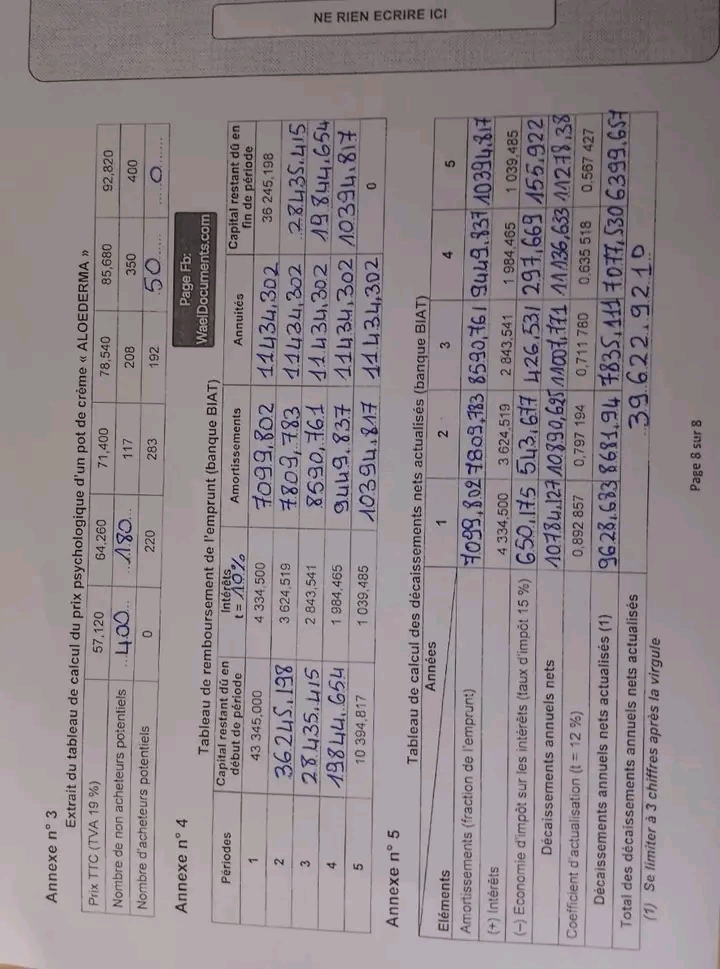 NE RIEN ECRIRE ICI
Annexe n° 3
Extrait du tableau de calcul du prix psychologique d'un pot de crème « ALOEDERMA »
Prix TTC (TVA 19 %) 57,120 64,260 71,400 78,540 85,680 92,820
Nombre de non acheteurs potentiels ..400... ...180... 117 208 350 400
Nombre d'acheteurs potentiels 0 220 283 192 50...... ....0......
Annexe n° 4
Page Fb:
WaelDocuments.com
Tableau de remboursement de l'emprunt (banque BIAT)
Périodes Capital restant dû en début de période Intérêts t = 10% Amortissements Annuités Capital restant dû en fin de période
1 43 345,000 4 334,500 7099,802 11434,302 36 245,198
2 36245,198 3 624,519 7809,783 11434,302 28435,415
3 28435,415 2 843,541 8590,761 11434,302 19844,654
4 19844,654 1 984,465 9449,837 11434,302 10394,817
5 10 394,817 1 039,485 10394,817 11434,302 0
Annexe n° 5
Tableau de calcul des décaissements nets actualisés (banque BIAT)
Eléments Années 1 2 3 4 5
Amortissements (fraction de l'emprunt) 7099,802 7809,783 8590,761 9449,837 10394,817
(+) Intérêts 4 334,500 3 624,519 2 843,541 1 984,465 1 039,485
(–) Economie d'impôt sur les intérêts (taux d'impôt 15 %) 650,175 543,677 426,531 297,669 155,922
Décaissements annuels nets 10784,127 10890,625 11007,771 11136,633 11278,38
Coefficient d'actualisation (t = 12 %) 0,892 857 0,797 194 0,711 780 0,635 518 0,567 427
Décaissements annuels nets actualisés (1) 9628,683 8681,94 7835,111 7077,530 6399,657
Total des décaissements annuels nets actualisés 39.622.9210
(1) Se limiter à 3 chiffres après la virgule
Page 8 sur 8